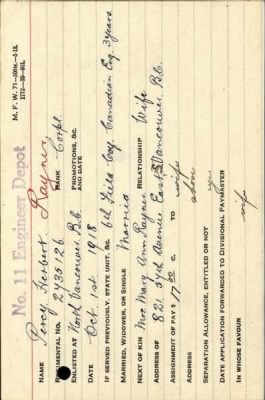 M. F. W. 71
No. 11 Engineer Depot
NAME Percy Herbert Rayner
REGIMENTAL NO. 2435126 RANK Corpl.
ENLISTED AT North Vancouver B.C. PROMOTIONS, &C. AND DATE
DATE Oct 1st 1918
IF SERVED PREVIOUSLY, STATE UNIT, &c. 6th Field Coy. Canadian Eng. 3 years
MARRIED, WIDOWER, OR SINGLE Married
NEXT OF KIN Mrs Mary Ann Rayner RELATIONSHIP Wife
ADDRESS OF 821 37th Avenue East Vancouver B.C.
ASSIGNMENT OF PAY $ 17 00 C. TO wife
ADDRESS above
SEPARATION ALLOWANCE, ENTITLED OR NOT yes
DATE APPLICATION FORWARDED TO DIVISIONAL PAYMASTER
IN WHOSE FAVOUR wife